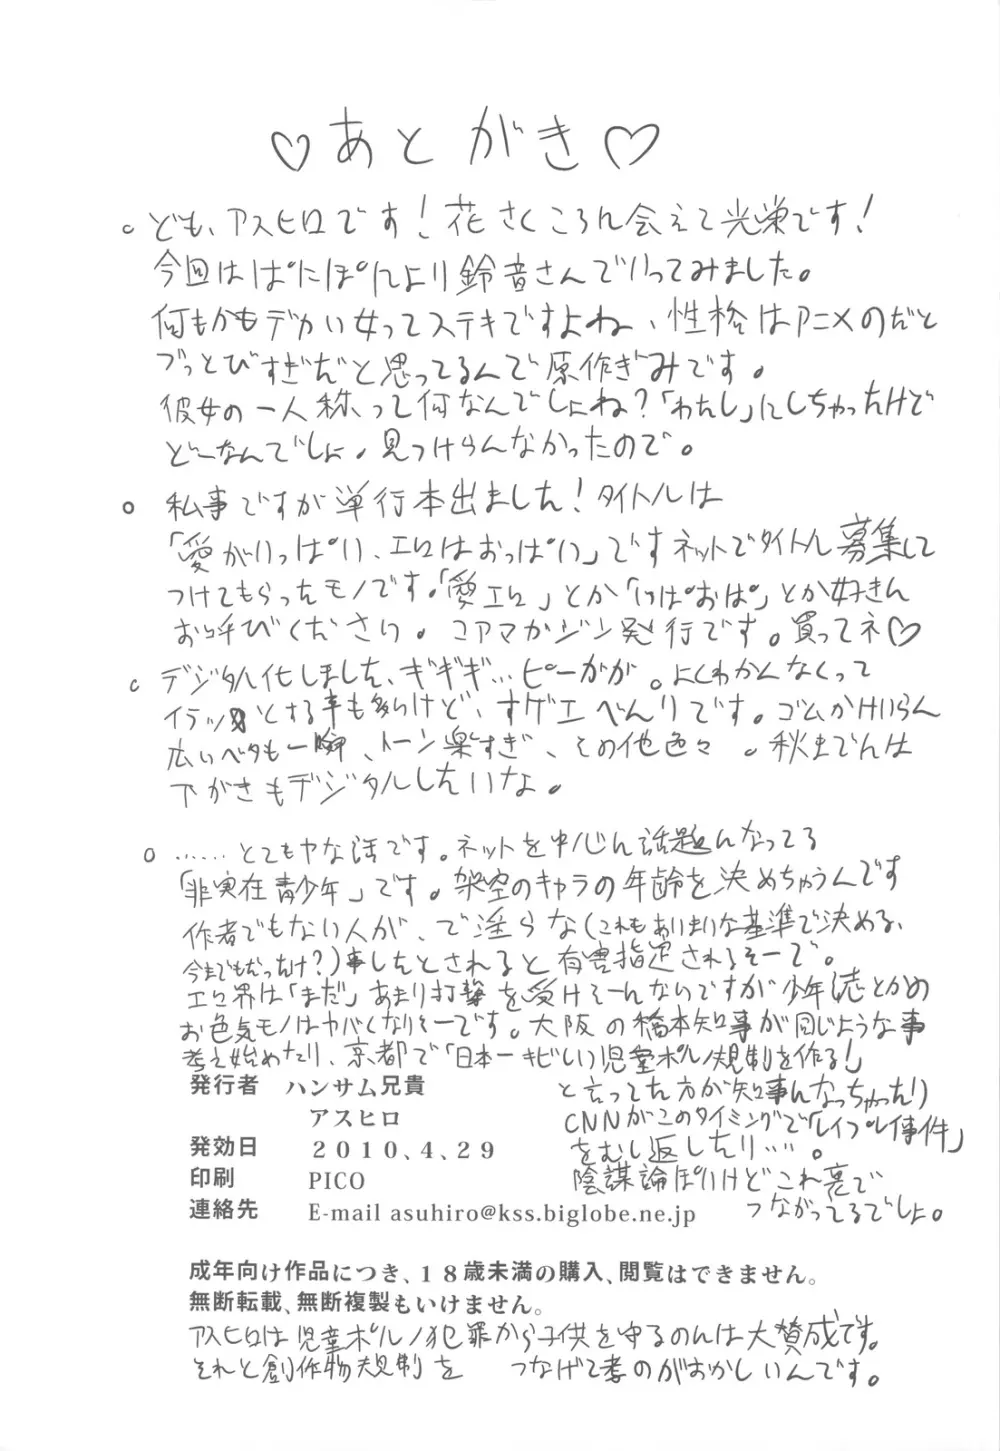 ♡あとがき♡
○ども、アスヒロです！花さくころに会えて光栄です！
今回はぱにぽにより鈴音さんでいってみました。
何もかもデカい女ってステキですよね、性格はアニメのだと
ブっとびすぎだと思ってるんで原作ぎみです。
彼女の一人称って何なんでしょね？「わたし」にしちゃったけで
どーなんでしょ。見つけらんなかったので。
○私事ですが単行本出ました！タイトルは
「愛がいっぱい、エロはおっぱい」ですネットでタイトル募集して
つけてもらったモノです。「愛エロ」とか「いぱおぱ」とか好きに
お呼びください。コアマガジン発行です。買ってネ♡
○デジタル化しました、ギギギ…ピーガガ。よくわかんなくって
イラッとする事も多いけど、すゲエべんりです。ゴムかけいらん
広いベタも一瞬、トーン楽すぎ、その他色々。秋までんは
下がきもデジタルしたいな。
○……とてもヤな話です。ネットを中心に話題になってる
「非実在青少年」です。架空のキャラの年齢を決めちゃうんです
作者でもない人が、で淫らな(これもあいまいな基準で決める、
今までもだっけ？)事したとされると有害指定されるそーで。
エロ界は「まだ」あまり打撃を受けそーんないですが少年誌とかの
お色気モノはヤバくなりそーです。大阪の橋本知事が同じような事
考え始めたり、京都で「日本一キビしい児童ポルノ規制を作る！」
と言ってた方が知事になっちゃったり
CNNがこのタイミングで「レイプレイ事件」
をむし返したり….。
陰謀論ぽいけどこれ裏で
つながってるでしょ。
発行者 ハンサム兄貴
アスヒロ
発効日 2010.4.29
印刷 PICO
連絡先 E-mail asuhiro@kss.biglobe.ne.jp
成年向け作品につき、18歳未満の購入、閲覧はできません。
無断転載、無断複製もいけません。
アスヒロは児童ポルノ犯罪から子供を守るのんは大賛成です。
それと創作物規制を つなげて考のがおかしいんです。